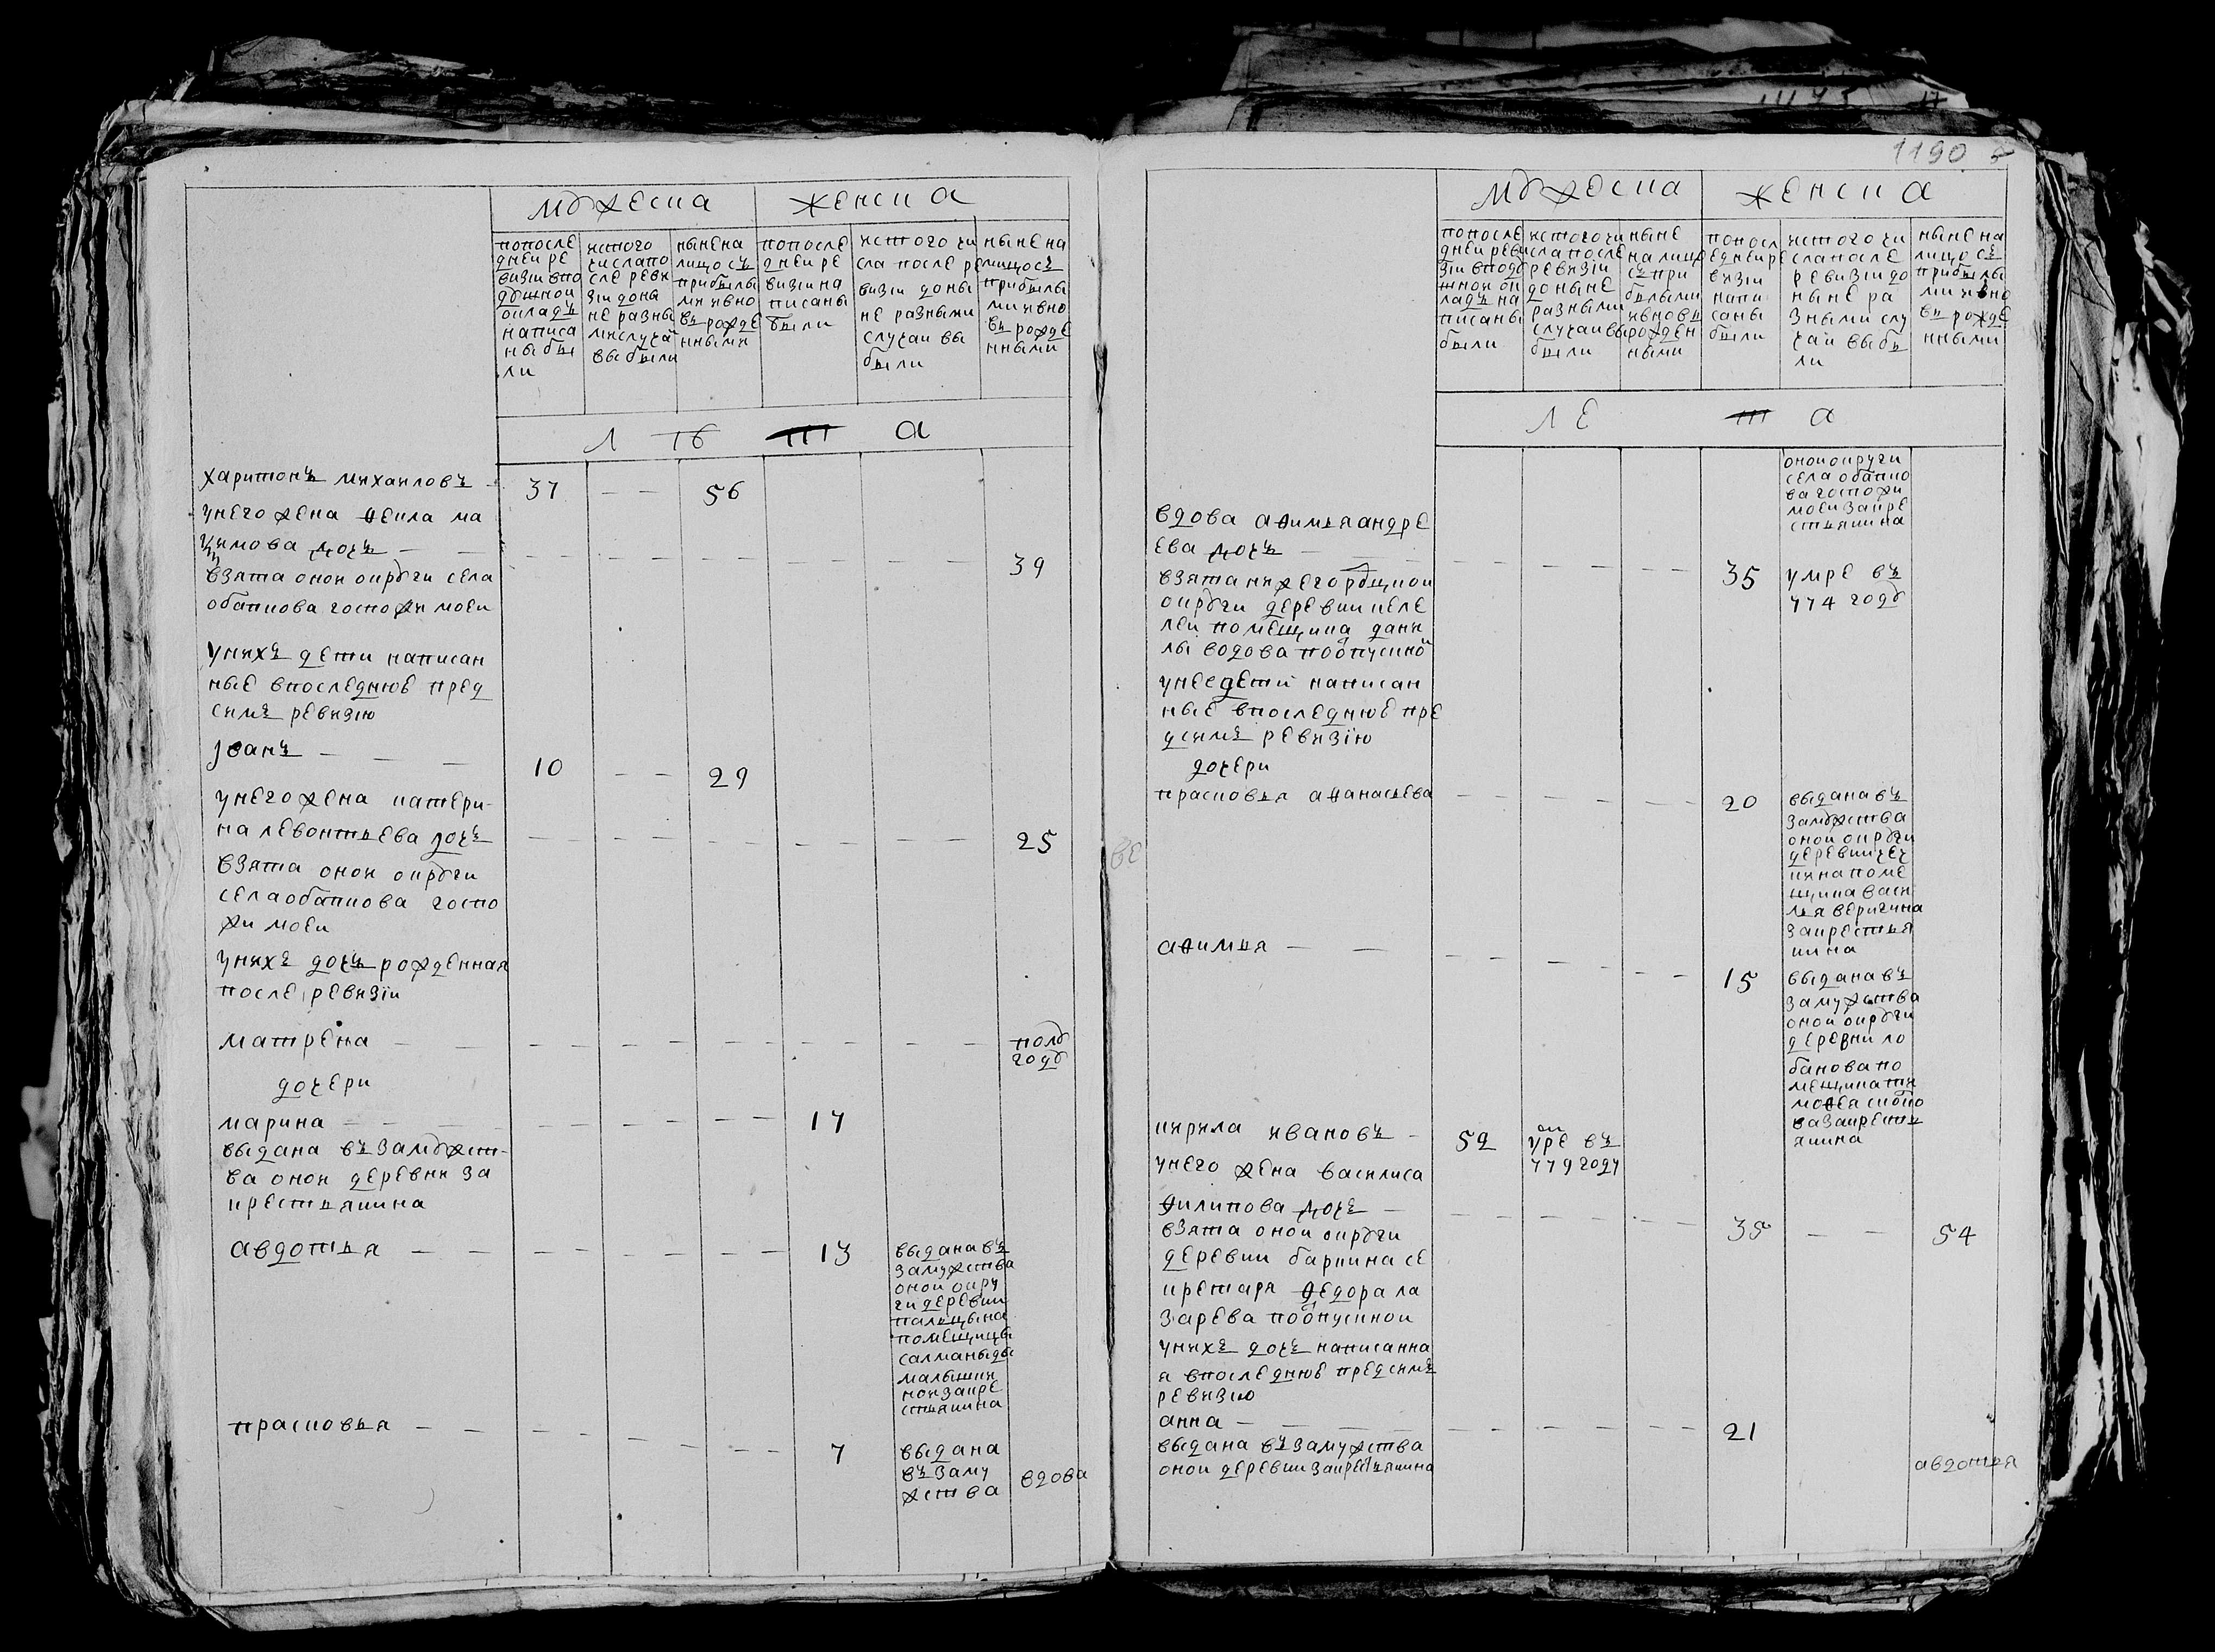 мужеска женска
попосле
дней ре
визiи впо
душной
окладъ
написа
ны бы
ли
истого
числапо
сле реви
зiи доны
не разны
мислучаи
выбыли
нынена
лицосъ
прибылы
ми ивно
въ рожде
нными
попосле
дней ре
визiи на
писаны
были
истого чи
сла после ре
визiи доны
не разными
случаи вы
были
нынена
лицосъ
прибылы
ми ивно
въ рожде
нными
лѣта
харитонъ михаиловъ 37 — — 56
унего жена ѳекла ма
ѯимова дочь — — 39
взята онои округи села
обапкова госпожи моеи
унихъ дети написан
ные впоследнюѣ пред
симъ ревизiю
јванъ — — — 10 — — 29
унего жена катери
на левонтьева дочь — — 25
взята онои округи
села обапкова госпо
жи моеи
унихъ дочь рожденная
после ревизiи
матрена — — полу
году
дочери
марина — — 17
выдана въ замужест
ва онои деревни за
крестьянина
авдотья — — 13 выдана въ
замужства
онои окру
ги деревни
пальцына
помещицы
салманыды
малыши
ноизакре
стьянина
прасковья — — 7 выдана
въ заму
жства
вдова
1190
мужеска женска
попосле
дней реви
зiи вподу
шнои ок
ладъ на
писаны
были
истогочи
сла после
ревизiи
доныне
разными
случаи вы
были
ныне
налицо
съ при
былыми
ивновъ
рожден
ными
попосл
едней ре
визiи
напи
саны
были
истого чи
сла после
ревизiи до
ныне ра
зными слу
чаи выбы
ли
ныне на
лицо съ
прибылы
ми ивно
въ рожде
нными
лета
онои округи
села обапко
ва госпожи
моеи закре
стьянина
вдова аѳимья андре
ева дочь — — 35 умре въ
774 году
взята нижегородцкои
округи деревни келе
леи помещика дани
лы водова поотпускнои
унее детй написан
ные впоследнюѣ пре
дсимъ ревизiю
дочери
прасковья аѳанасьева — — 20 выдана въ
замужства
онои округи
деревни чеч
кина поме
щика васи
лья веригина
закрестья
нина
аѳимья — — 15 выдана въ
замужства
онои округи
деревни ло
банова по
мещика ти
моѳея скобо
ва закресть
янина
кирила ивановъ — 52 умре въ
779 году
унего жена василиса
ѳилипова дочь — — 35 — — 54
взята онои округи
деревни баркина се
кретаря ѳедора ла
зарева поотпускнои
унихъ дочь написанна
я впоследнюѣ предсимъ
ревизiю
анна — — 21
выдана въ замужства
онои деревни закрестьянина
авдотья